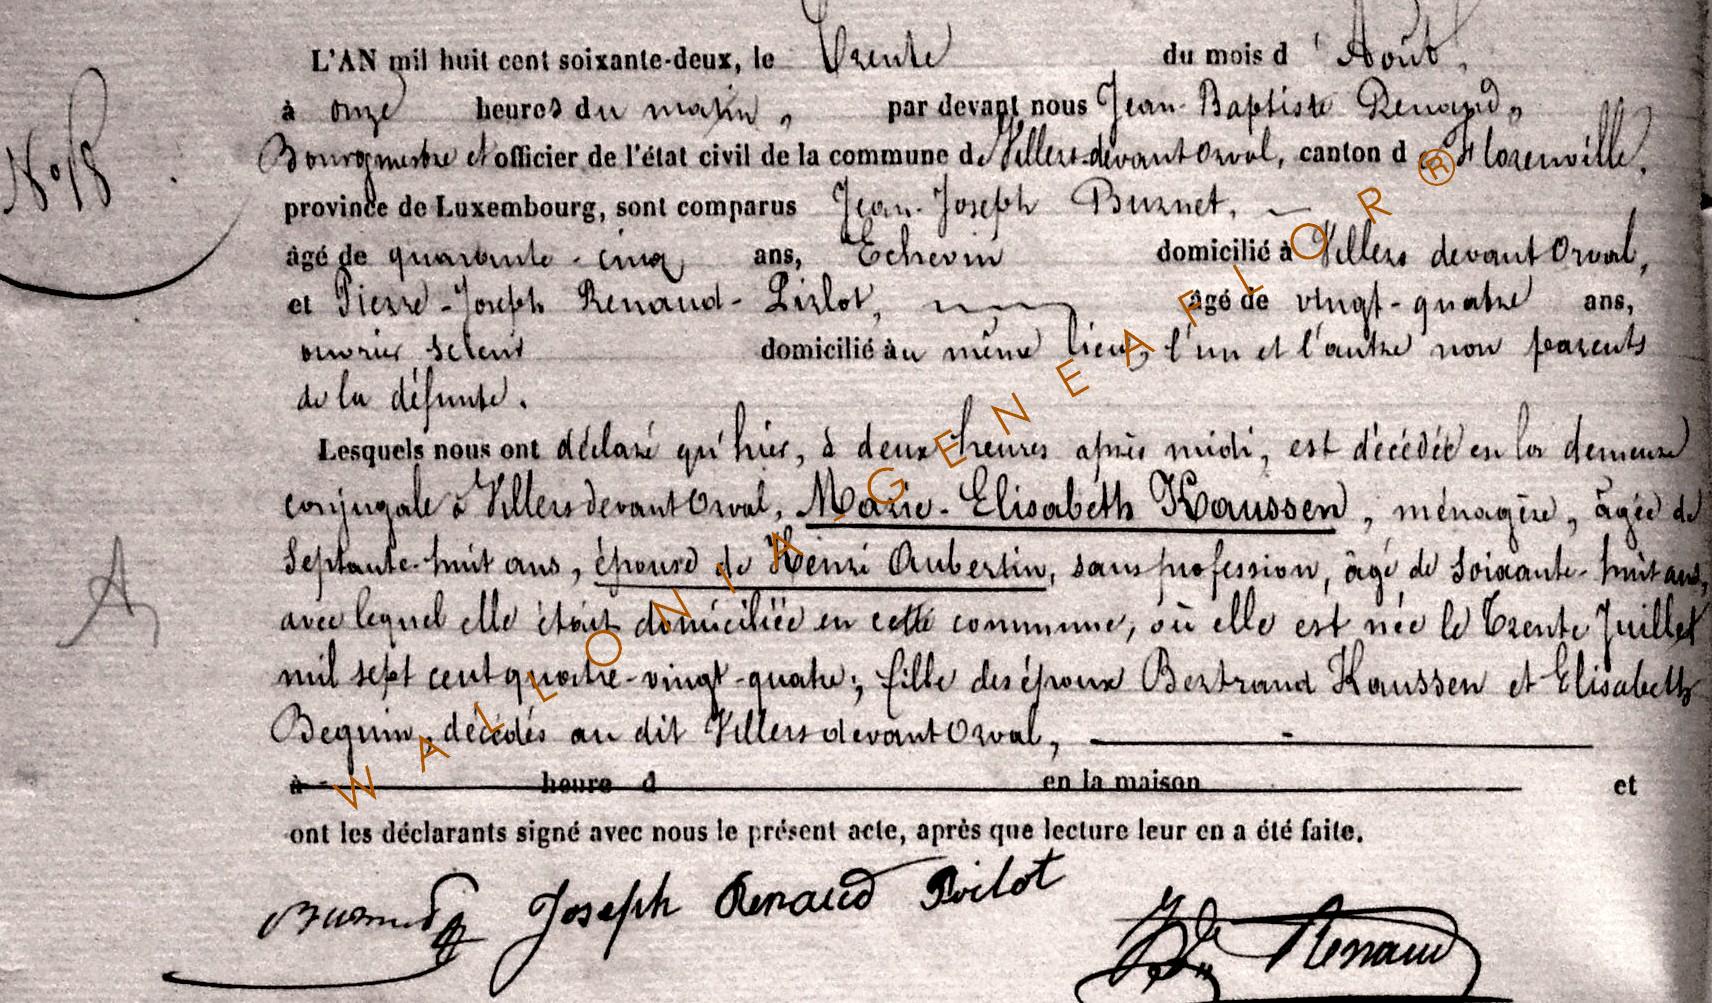 L'AN mil huit cent soixante-deux, le Trente du mois d'Août,
à onze heures du matin, par devant nous Jean-Baptiste Renaud,
Bourgmestre et officier de l'état civil de la commune de Villers devant Orval, canton de Florenville,
N° 18
province de Luxembourg, sont comparus Jean-Joseph Burnet,
âgé de quarante-cinq ans, Echevin domicilié à Villers devant Orval,
et Pierre-Joseph Renaud-Pirlot, âgé de vingt-quatre ans,
ouvrier domicilié au même lieu, l'un et l'autre non parents
de la défunte.
Lesquels nous ont déclaré qu'hier, à deux heures après midi, est décédée en la demeure
conjugale à Villers devant Orval, Marie-Elisabeth Haussen, ménagère, âgée de
Septante-huit ans, épouse de Henri Aubertin, sans profession, âgé de Soixante-huit ans,
A
avec lequel elle était domiciliée en cette commune, où elle est née le Trente Juillet
mil sept cent quatre-vingt-quatre; fille des époux Bertrand Haussen et Elisabeth
Beguin, décédés au dit Villers devant Orval,
à heure d en la maison et
ont les déclarants signé avec nous le présent acte, après que lecture leur en a été faite.
Burnet Joseph Renaud Pirlot Renaud
WALLONIA GENEAFLOR ®